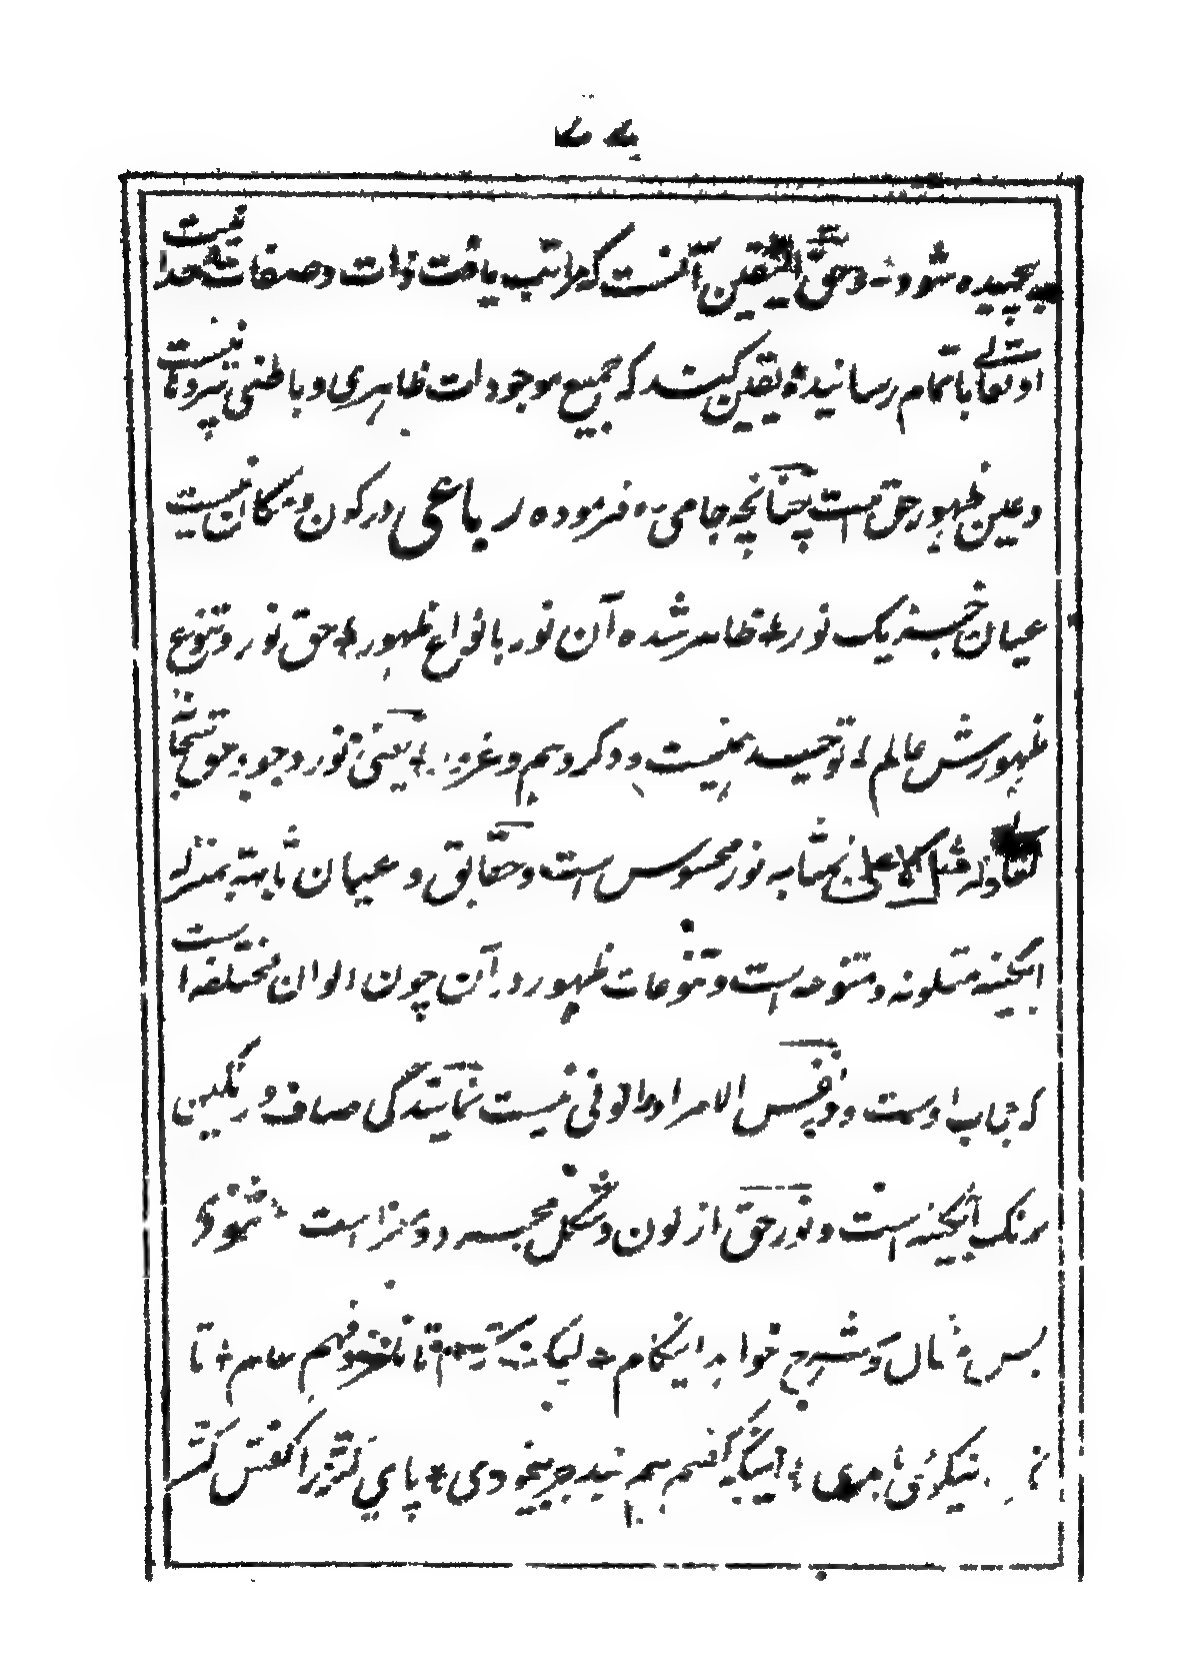 پیچیده شود و حق الیقین آنست که مراتب یافت ذات و صفات خدا نیست
او تعالے باتمام رسانیده یقین کند که جمیع موجودات ظاهری و باطنی نیست
و عین ظهور حق است چنانچه جامی فرموده رباعی در کون و مکان نیست
عیان جز یک نور ظاهر شده آن نور بانواع ظهور حق نور و تنوع
ظهورش عالم توحید همینست و دگر وهم و غرور یعنی نور وجوب حق
مثل الاعلی بمثابه نور محسوس است و حقایق و عیان ثابته بمنزله
آبگینه متلونه و متنوعه است و تنوعات ظهور در آن چون الوان مختلفه است
که حجاب اوست و در نفس الامر او را لونی نیست نمایندگی صاف و رنگین
برنگ آبگینه است و نور حق از لون و شکل مجسه و مبرا است مثنوی
بس مثال و شرح خواهد این کلام لیک تا نلغزد فهم عام تا
نیکوئی بدی اینکه گفتم هم نبد جز بیخودی پای کژ را کفش کژ